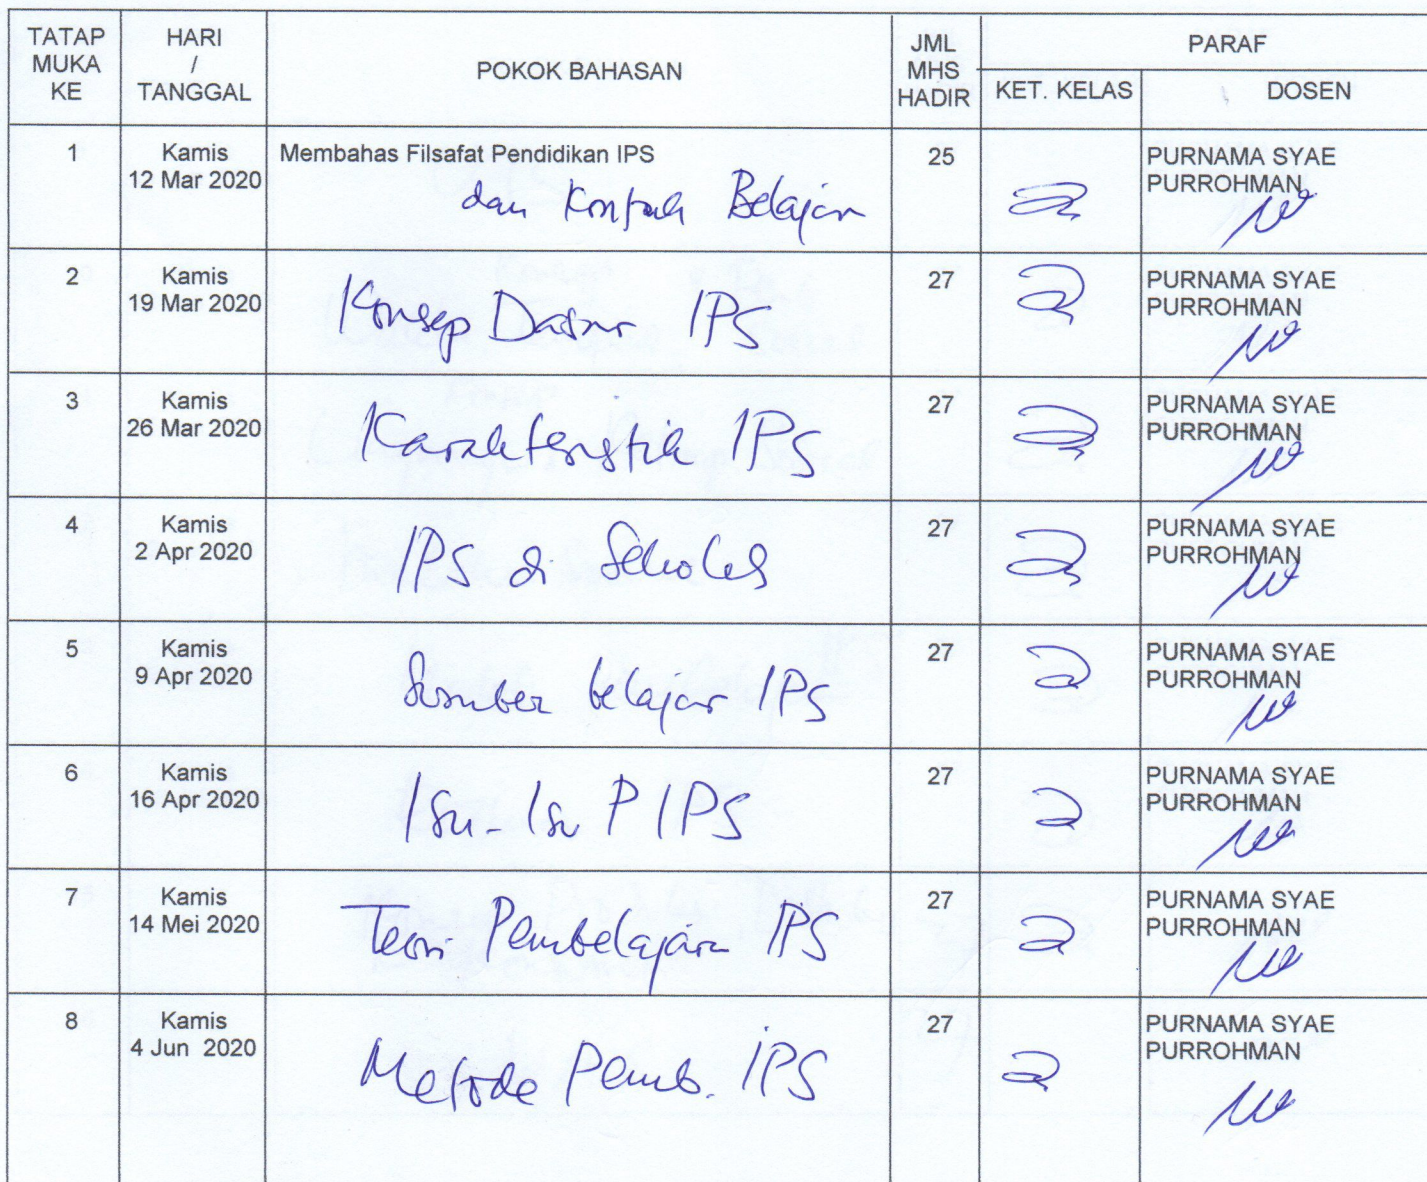 TATAP MUKA KE
HARI / TANGGAL
POKOK BAHASAN
JML MHS HADIR
PARAF
KET. KELAS
DOSEN
1
Kamis
12 Mar 2020
Membahas Filsafat Pendidikan IPS
dan Kontrak Belajar
25
PURNAMA SYAE
PURROHMAN
2
Kamis
19 Mar 2020
Konsep Dasar IPS
27
PURNAMA SYAE
PURROHMAN
3
Kamis
26 Mar 2020
Karakteristik IPS
27
PURNAMA SYAE
PURROHMAN
4
Kamis
2 Apr 2020
IPS di Sekolah
27
PURNAMA SYAE
PURROHMAN
5
Kamis
9 Apr 2020
Sumber belajar IPS
27
PURNAMA SYAE
PURROHMAN
6
Kamis
16 Apr 2020
Isu-Isu P IPS
27
PURNAMA SYAE
PURROHMAN
7
Kamis
14 Mei 2020
Teori Pembelajaran IPS
27
PURNAMA SYAE
PURROHMAN
8
Kamis
4 Jun 2020
Metode Pemb. IPS
27
PURNAMA SYAE
PURROHMAN